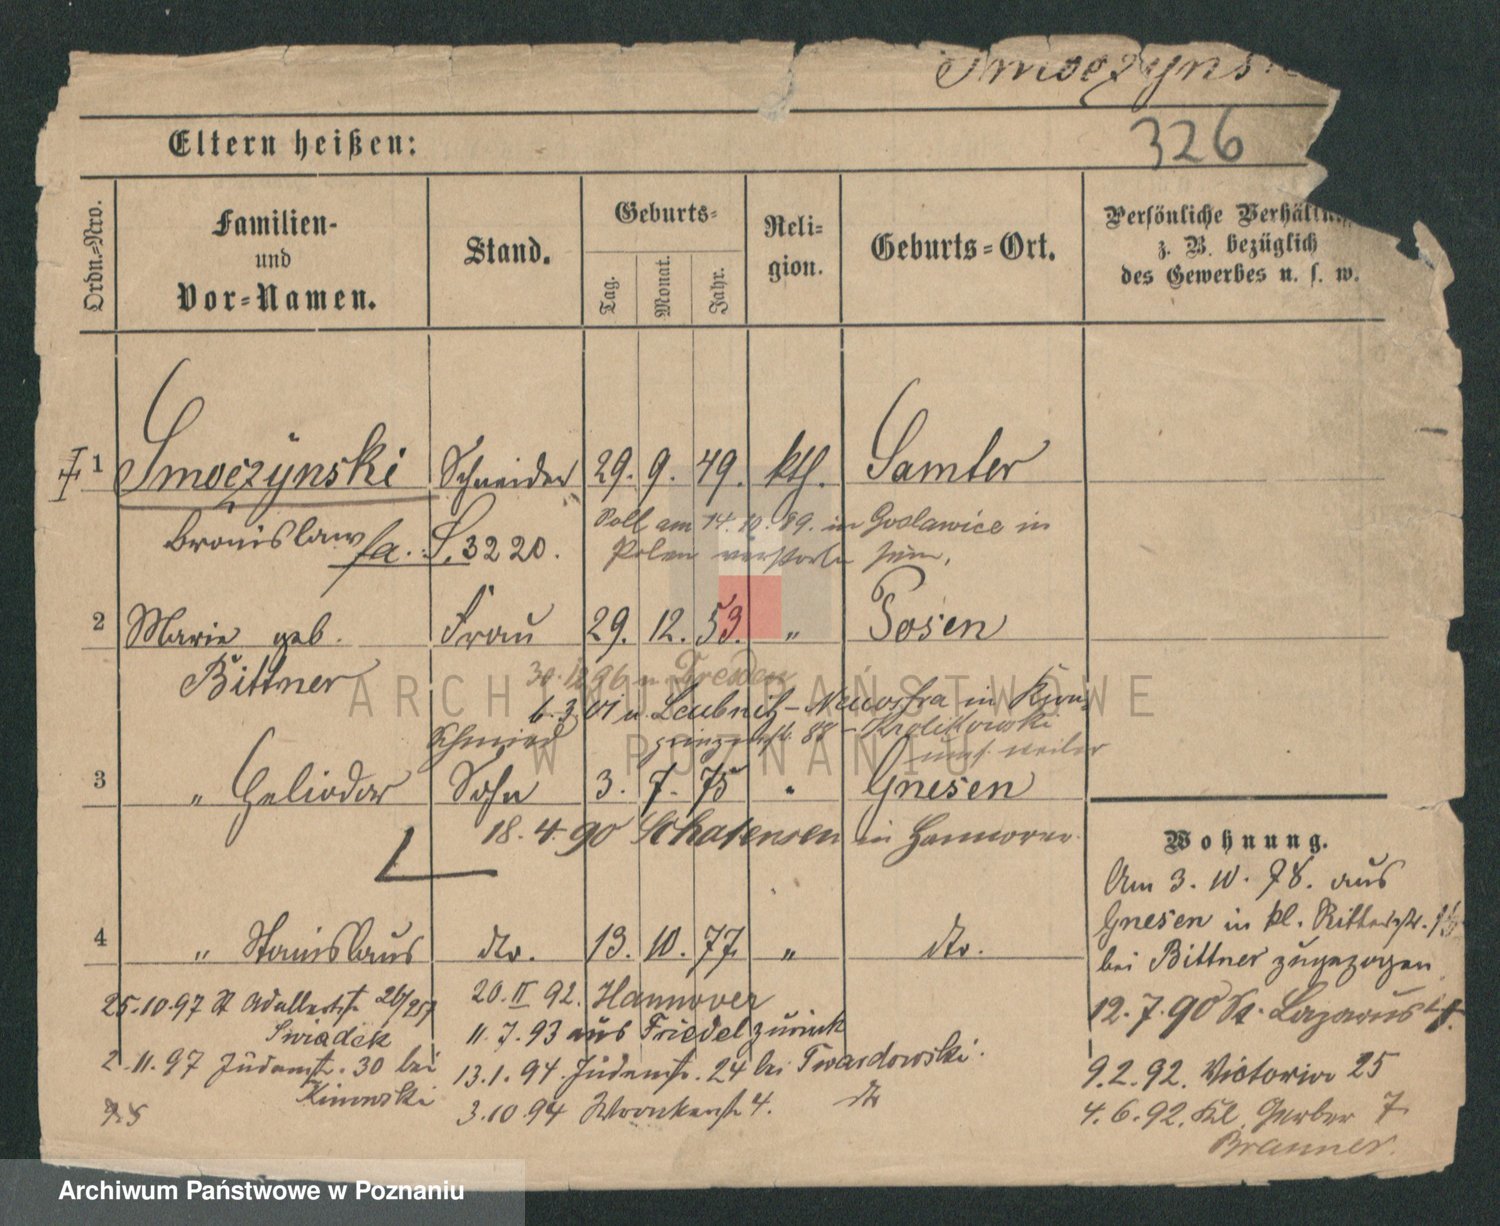 Smoczyns
326
Eltern heißen:
Ordn.-Nro.
Familien-
und
Vor-Namen.
Stand.
Geburts-
Tag.
Monat.
Jahr.
Reli-
gion.
Geburts-Ort.
Persönliche Verhältn
z. B. bezüglich
des Gewerbes u. s. w.
1 Smoczynski Schneider 29. 9. 49. kth. Samter
Bronislaw fa. S. 3220.
Soll am 14.10.89. in Goslawice in
Polen verstorben sein.
2 Marie geb. Frau 29. 12. 53. " Posen
Bittner
30. 96 n. Dresden
6.3.01 n. Leubnitz-Neuostra in
88 - Krolikowski
Schmied
3 " Heliodor Sohn 3. 7. 75 " Gnesen
18.4.90 in Hannover.
4 " Stanislaus dto. 13. 10. 77 " dto.
Wohnung.
Am 3. 10. 78. aus
Gnesen in kl. Ritterstr.
bei Bittner zugezogen
12.7.90 St. Lazarus
9.2.92. Victoria 25
4.6.92. Kl. Gerber 7
Branner.
20. II 92. Hannover
11.7.93 aus Friedel zurück
13.1.94. Judenstr. 24 bei Twardowski.
3.10.94 Wronkerstr 4. dto
25.10.97 St Adalbertstr. 26/257
Swiadek
2.11.97 Judenstr. 30 bei
ARCHIWUM PAŃSTWOWE
W POZNANIU
Archiwum Państwowe w Poznaniu